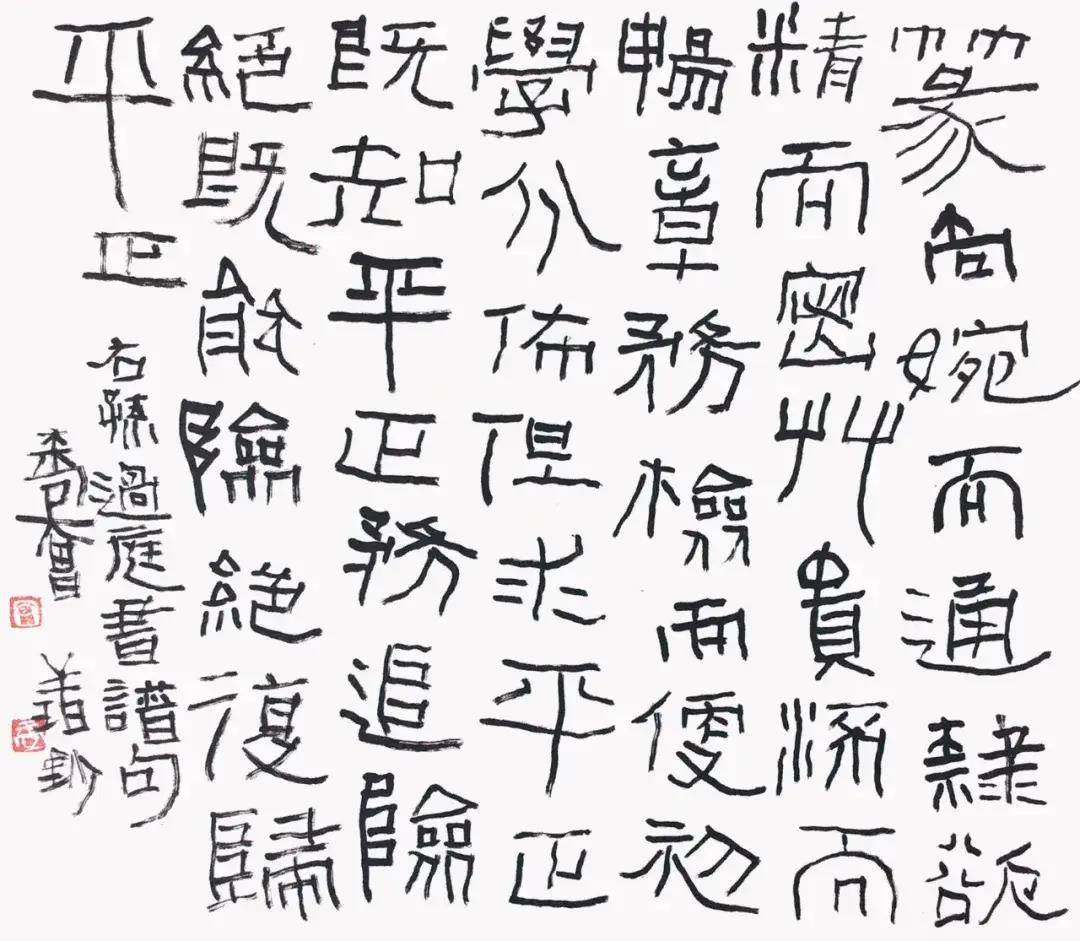 篆尚婉而通隸欲
精而密艸貴流而
暢章務檢而便初
學分佈但求平正
既知平正務追險
絕既能險絕復歸
平正
右孫過庭書譜句
鈔